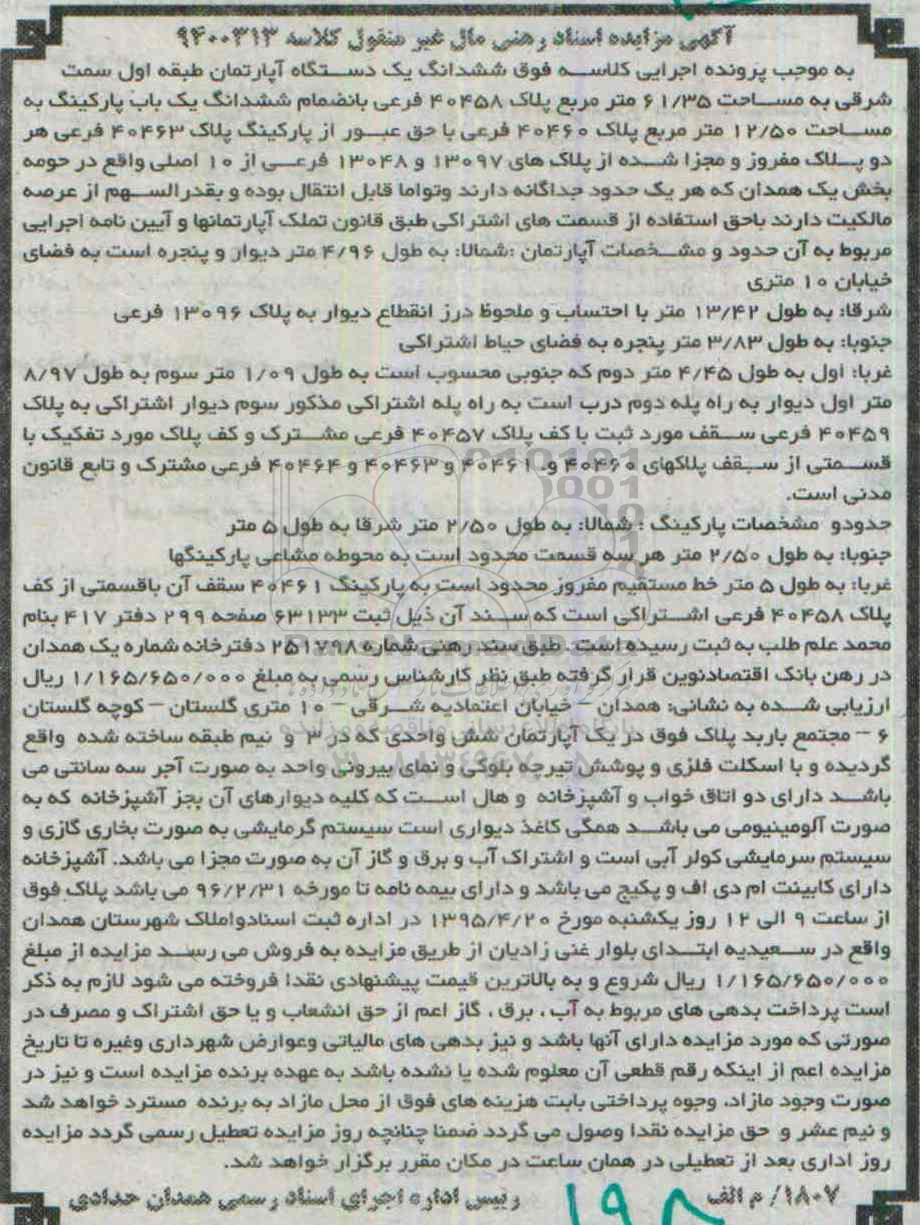 آگهی مزایده اسناد رهنی مال غیر منقول کلاسه ۹۴۰۰۳۱۳
به موجب پرونده اجرایی کلاسه فوق ششدانگ یک دستگاه آپارتمان طبقه اول سمت
شرقی به مساحت ۶۱/۳۵ متر مربع پلاک ۴۰۴۵۸ فرعی بانضمام ششدانگ یک باب پارکینگ به
مساحت ۱۲/۵۰ متر مربع پلاک ۴۰۴۶۰ فرعی با حق عبور از پارکینگ پلاک ۴۰۴۶۳ فرعی هر
دو پلاک مفروز و مجزا شده از پلاک های ۱۳۰۹۷ و ۱۳۰۴۸ فرعی از ۱۰ اصلی واقع در حومه
بخش یک همدان که هر یک حدود جداگانه دارند وتواما قابل انتقال بوده و بقدرالسهم از عرصه
مالکیت دارند باحق استفاده از قسمت های اشتراکی طبق قانون تملک آپارتمانها و آیین نامه اجرایی
مربوط به آن حدود و مشخصات آپارتمان :شمالا: به طول ۴/۹۶ متر دیوار و پنجره است به فضای
خیابان ۱۰ متری
شرقا: به طول ۱۳/۴۲ متر با احتساب و ملحوظ درز انقطاع دیوار به پلاک ۱۳۰۹۶ فرعی
جنوبا: به طول ۳/۸۳ متر پنجره به فضای حیاط اشتراکی
غربا: اول به طول ۴/۴۵ متر دوم که جنوبی محسوب است به طول ۱/۰۹ متر سوم به طول ۸/۹۷
متر اول دیوار به راه پله دوم درب است به راه پله اشتراکی مذکور سوم دیوار اشتراکی به پلاک
۴۰۴۵۹ فرعی سقف مورد ثبت با کف پلاک ۴۰۴۵۷ فرعی مشترک و کف پلاک مورد تفکیک با
قسمتی از سقف پلاکهای ۴۰۴۶۰ و. ۴۰۴۶۱ و ۴۰۴۶۳ و ۴۰۴۶۴ فرعی مشترک و تابع قانون
مدنی است.
حدودو مشخصات پارکینگ : شمالا: به طول ۲/۵۰ متر شرقا به طول ۵ متر
جنوبا: به طول ۲/۵۰ متر هر سه قسمت محدود است به محوطه مشاعی پارکینگها
غربا: به طول ۵ متر خط مستقیم مفروز محدود است به پارکینگ ۴۰۴۶۱ سقف آن باقسمتی از کف
پلاک ۴۰۴۵۸ فرعی اشتراکی است که سند آن ذیل ثبت ۶۳۱۳۳ صفحه ۲۹۹ دفتر ۴۱۷ بنام
محمد علم طلب به ثبت رسیده است . طبق سند رهنی شماره ۲۵۱۷۹۸ دفترخانه شماره یک همدان
در رهن بانک اقتصادنوین قرار گرفته طبق نظر کارشناس رسمی به مبلغ ۱/۱۶۵/۶۵۰/۰۰۰ ریال
ارزیابی شده به نشانی: همدان – خیابان اعتمادیه شرقی – ۱۰ متری گلستان – کوچه گلستان
۶ – مجتمع باربد پلاک فوق در یک آپارتمان شش واحدی که در ۳ و نیم طبقه ساخته شده واقع
گردیده و با اسکلت فلزی و پوشش تیرچه بلوکی و نمای بیرونی واحد به صورت آجر سه سانتی می
باشد دارای دو اتاق خواب و آشپزخانه و هال است که کلیه دیوارهای آن بجز آشپزخانه که به
صورت آلومینیومی می باشد همگی کاغذ دیواری است سیستم گرمایشی به صورت بخاری گازی و
سیستم سرمایشی کولر آبی است و اشتراک آب و برق و گاز آن به صورت مجزا می باشد. آشپزخانه
دارای کابینت ام دی اف و پکیج می باشد و دارای بیمه نامه تا مورخه ۹۶/۲/۳۱ می باشد پلاک فوق
از ساعت ۹ الی ۱۲ روز یکشنبه مورخ ۱۳۹۵/۴/۲۰ در اداره ثبت اسنادواملاک شهرستان همدان
واقع در سعیدیه ابتدای بلوار غنی زادیان از طریق مزایده به فروش می رسد مزایده از مبلغ
۱/۱۶۵/۶۵۰/۰۰۰ ریال شروع و به بالاترین قیمت پیشنهادی نقدا فروخته می شود لازم به ذکر
است پرداخت بدهی های مربوط به آب ، برق ، گاز اعم از حق انشعاب و یا حق اشتراک و مصرف در
صورتی که مورد مزایده دارای آنها باشد و نیز بدهی های مالیاتی وعوارض شهرداری وغیره تا تاریخ
مزایده اعم از اینکه رقم قطعی آن معلوم شده یا نشده باشد به عهده برنده مزایده است و نیز در
صورت وجود مازاد، وجوه پرداختی بابت هزینه های فوق از محل مازاد به برنده مسترد خواهد شد
و نیم عشر و حق مزایده نقدا وصول می گردد ضمنا چنانچه روز مزایده تعطیل رسمی گردد مزایده
روز اداری بعد از تعطیلی در همان ساعت در مکان مقرر برگزار خواهد شد.
۱۸۰۷/ م الف رییس اداره اجرای اسناد رسمی همدان حدادی
۱۹۸